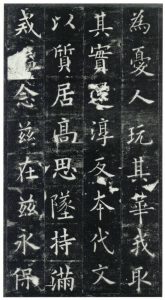 為憂人玩其華我取
其實還淳反本代文
以質居高思墜持滿
戒溢念兹在兹永保